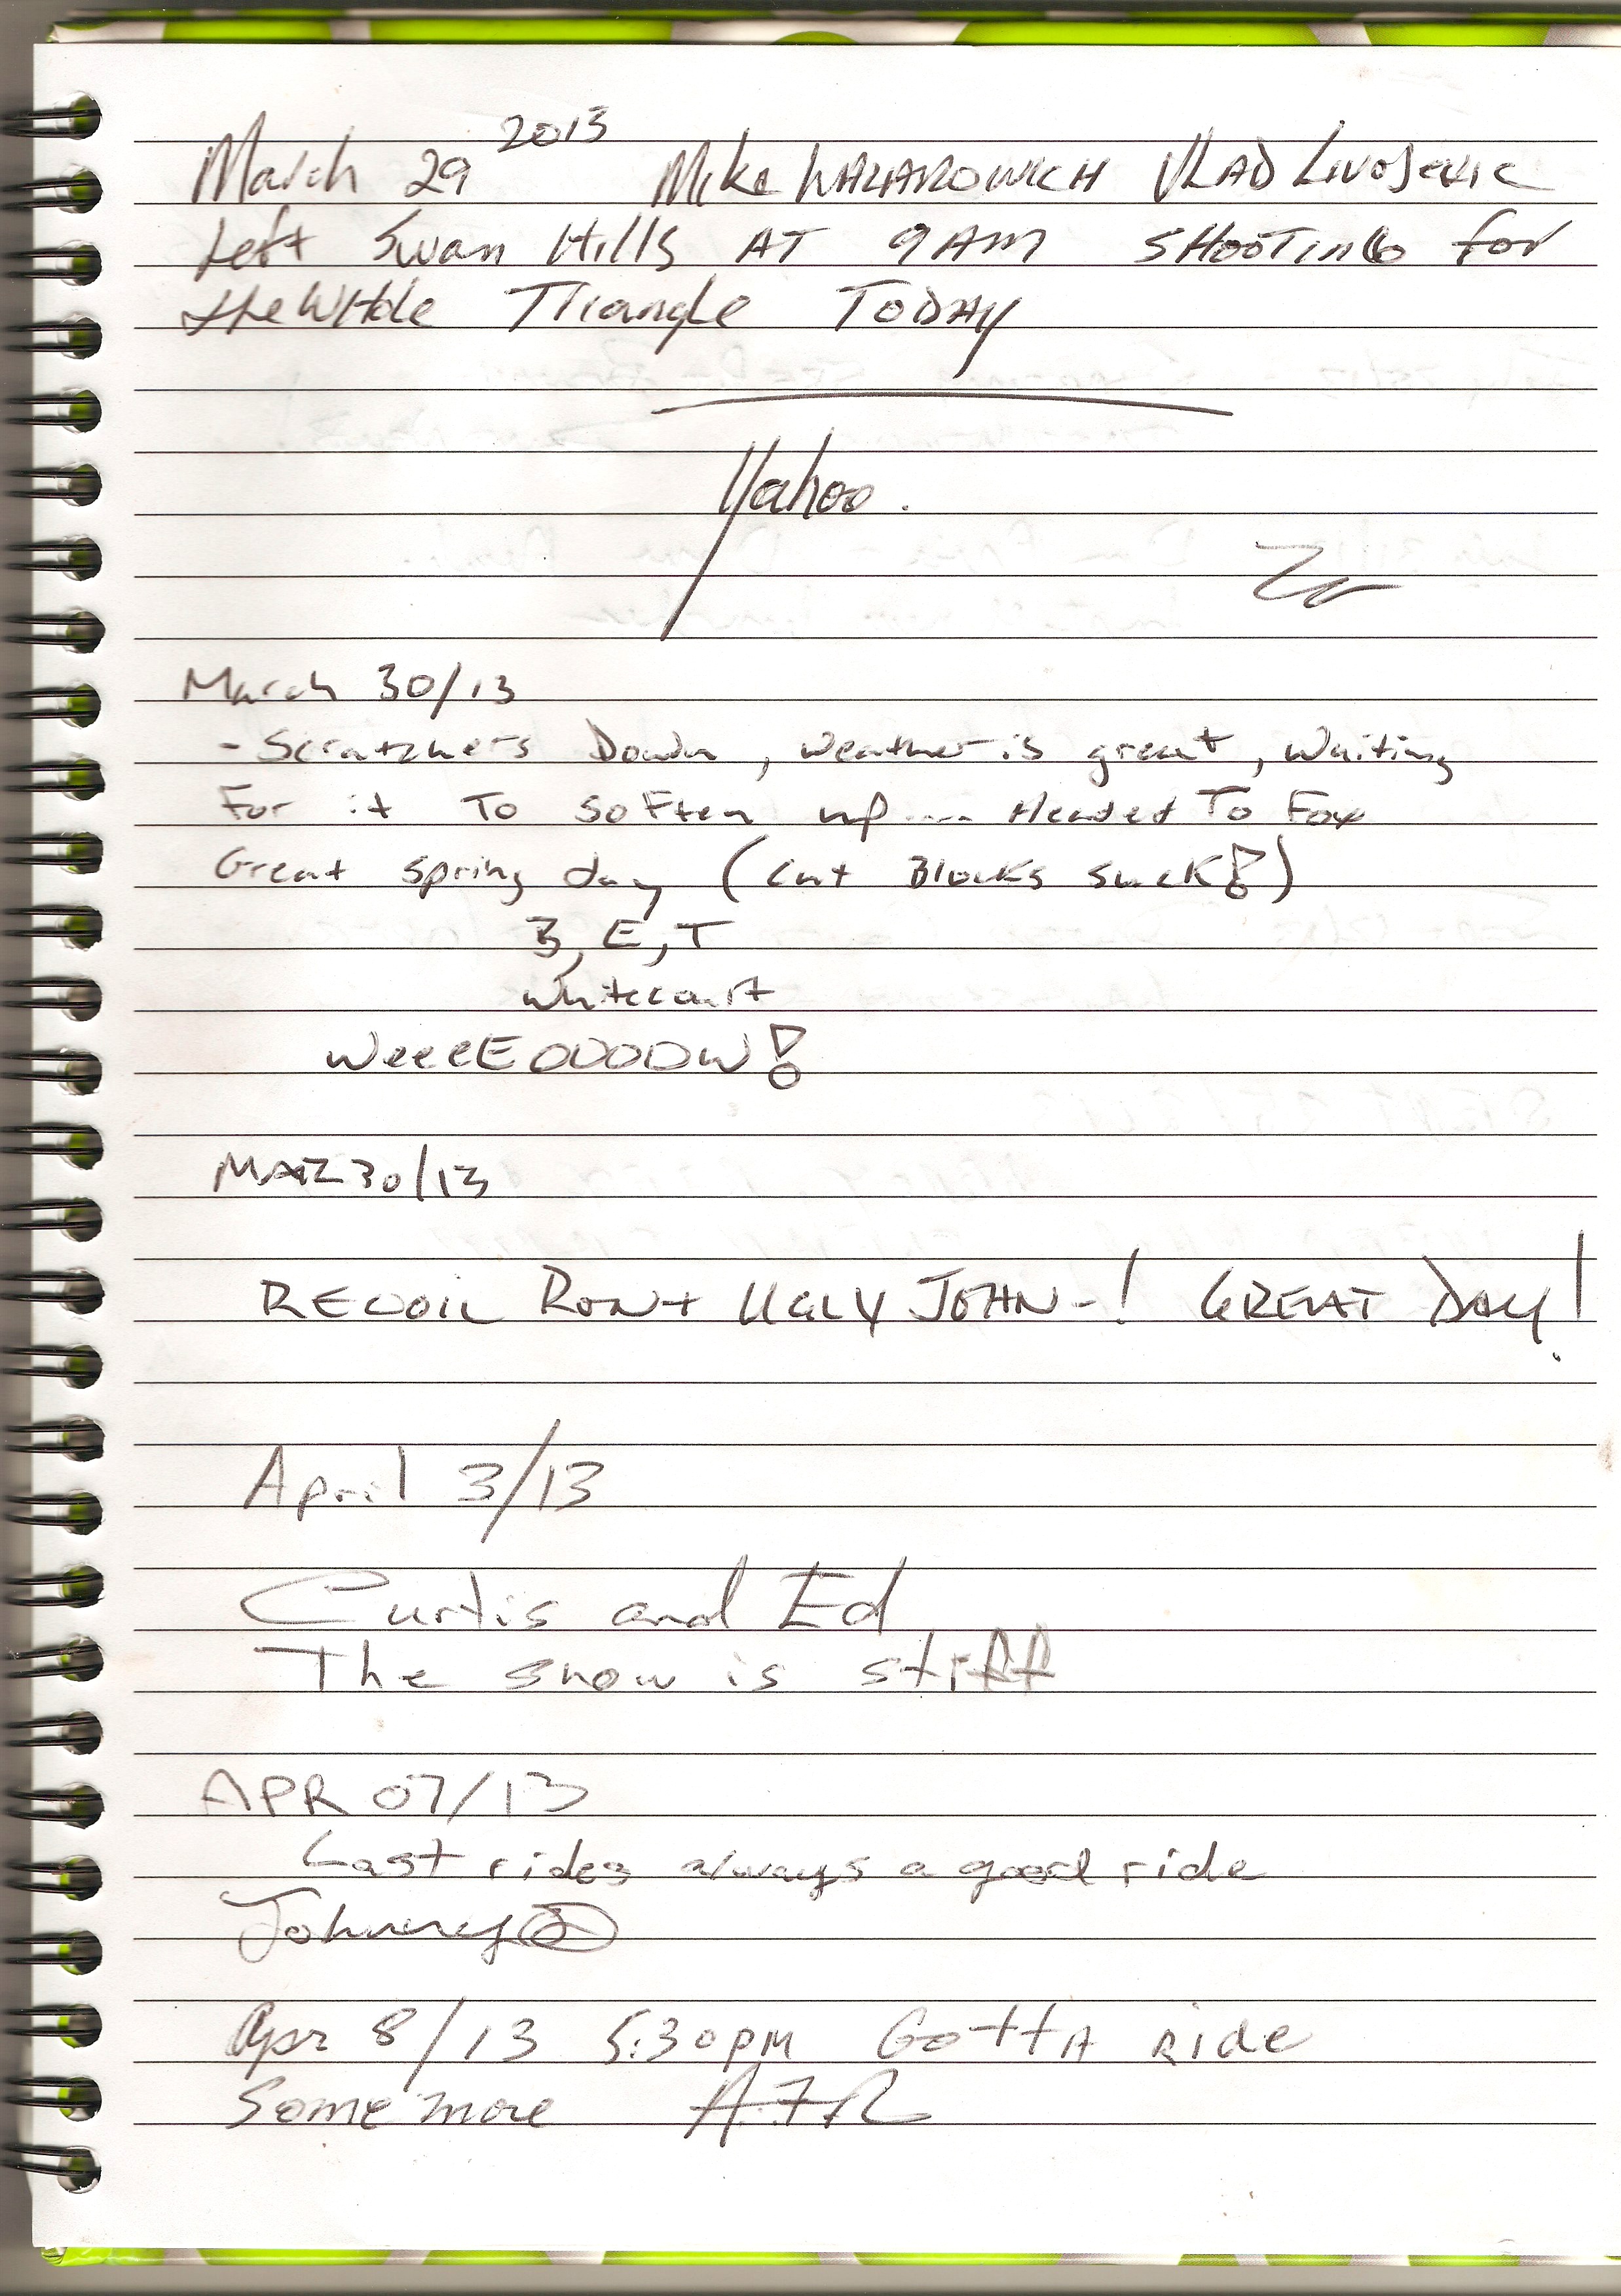 March 29 2013 Mike VLAD
Left Swan Hills AT 9 AM SHOOTING for
the Whole Triangle TODAY
Yahoo.
March 30/13
- Scratchers Down, weather is great, waiting
For it To soften up.... Headed To Fox
Great spring day (cut Blocks suck!)
B, E, T
Whitecourt
WeeeEOOOOW!
MAR 30/13
RECOIL RON + UGLY JOHN-! GREAT DAY!
April 3/13
Curtis and Ed
The snow is stiff
APR 07/13
Last rides always a good ride
Johnney
Apr 8/13 5:30PM GottA Ride
Some more